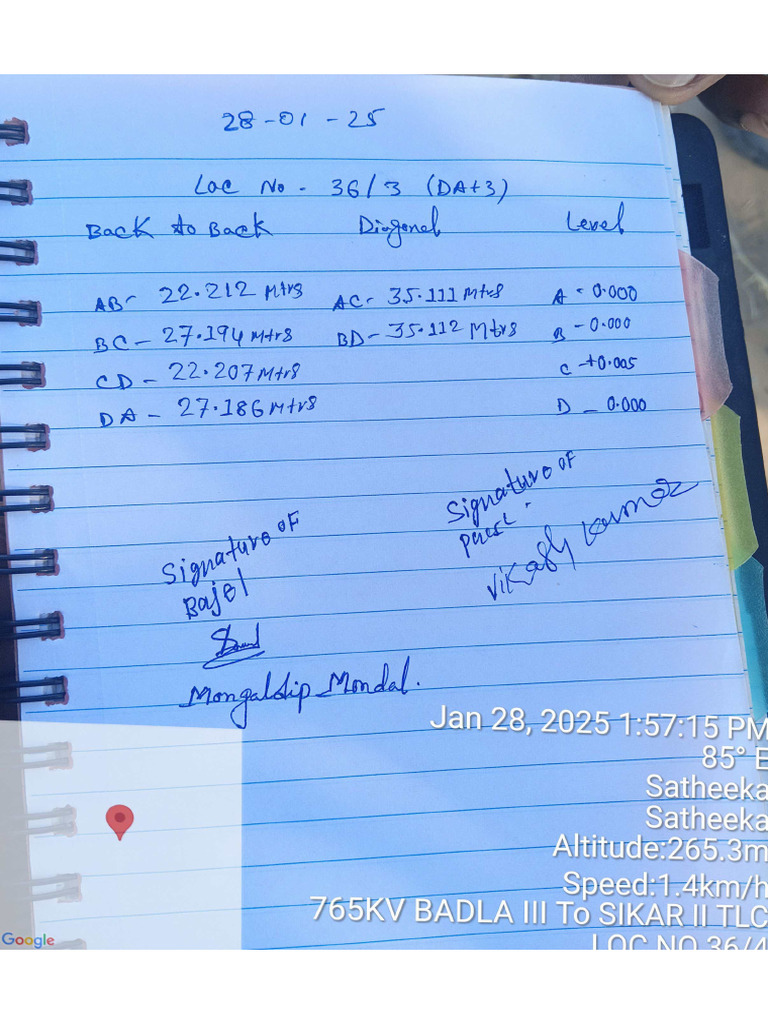 28-01-25
Loc No. 36/3 (DA+3)
Back to Back Diogonal Level
AB- 22.212 Mtrs AC- 35.111 Mtrs A - 0.000
BC - 27.194 Mtrs BD - 35.112 Mtrs B - 0.000
CD - 22.207 Mtrs C - +0.005
DA - 27.186 Mtrs D - 0.000
Signature of
Signature of
Bajel
Vikash Kumar
Mongaldip Mondal.
Jan 28, 2025 1:57:15 PM
85° E
Satheeka
Satheeka
Altitude:265.3m
Speed:1.4km/h
765KV BADLA III To SIKAR II TLC
LOC NO 36/4
Google